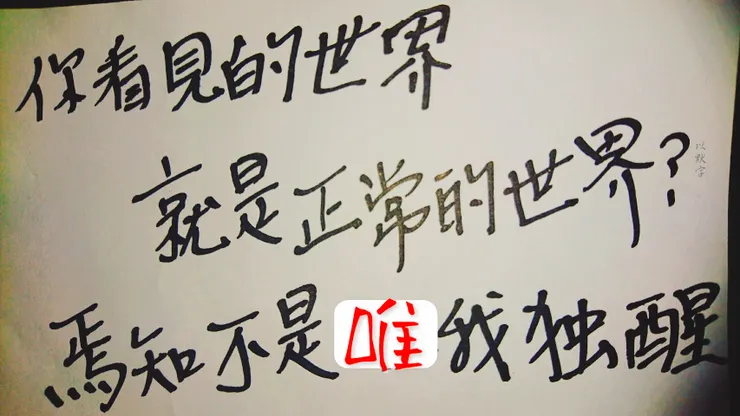 你看見的世界
就是正常的世界?
以默字
焉知不是唯我独醒